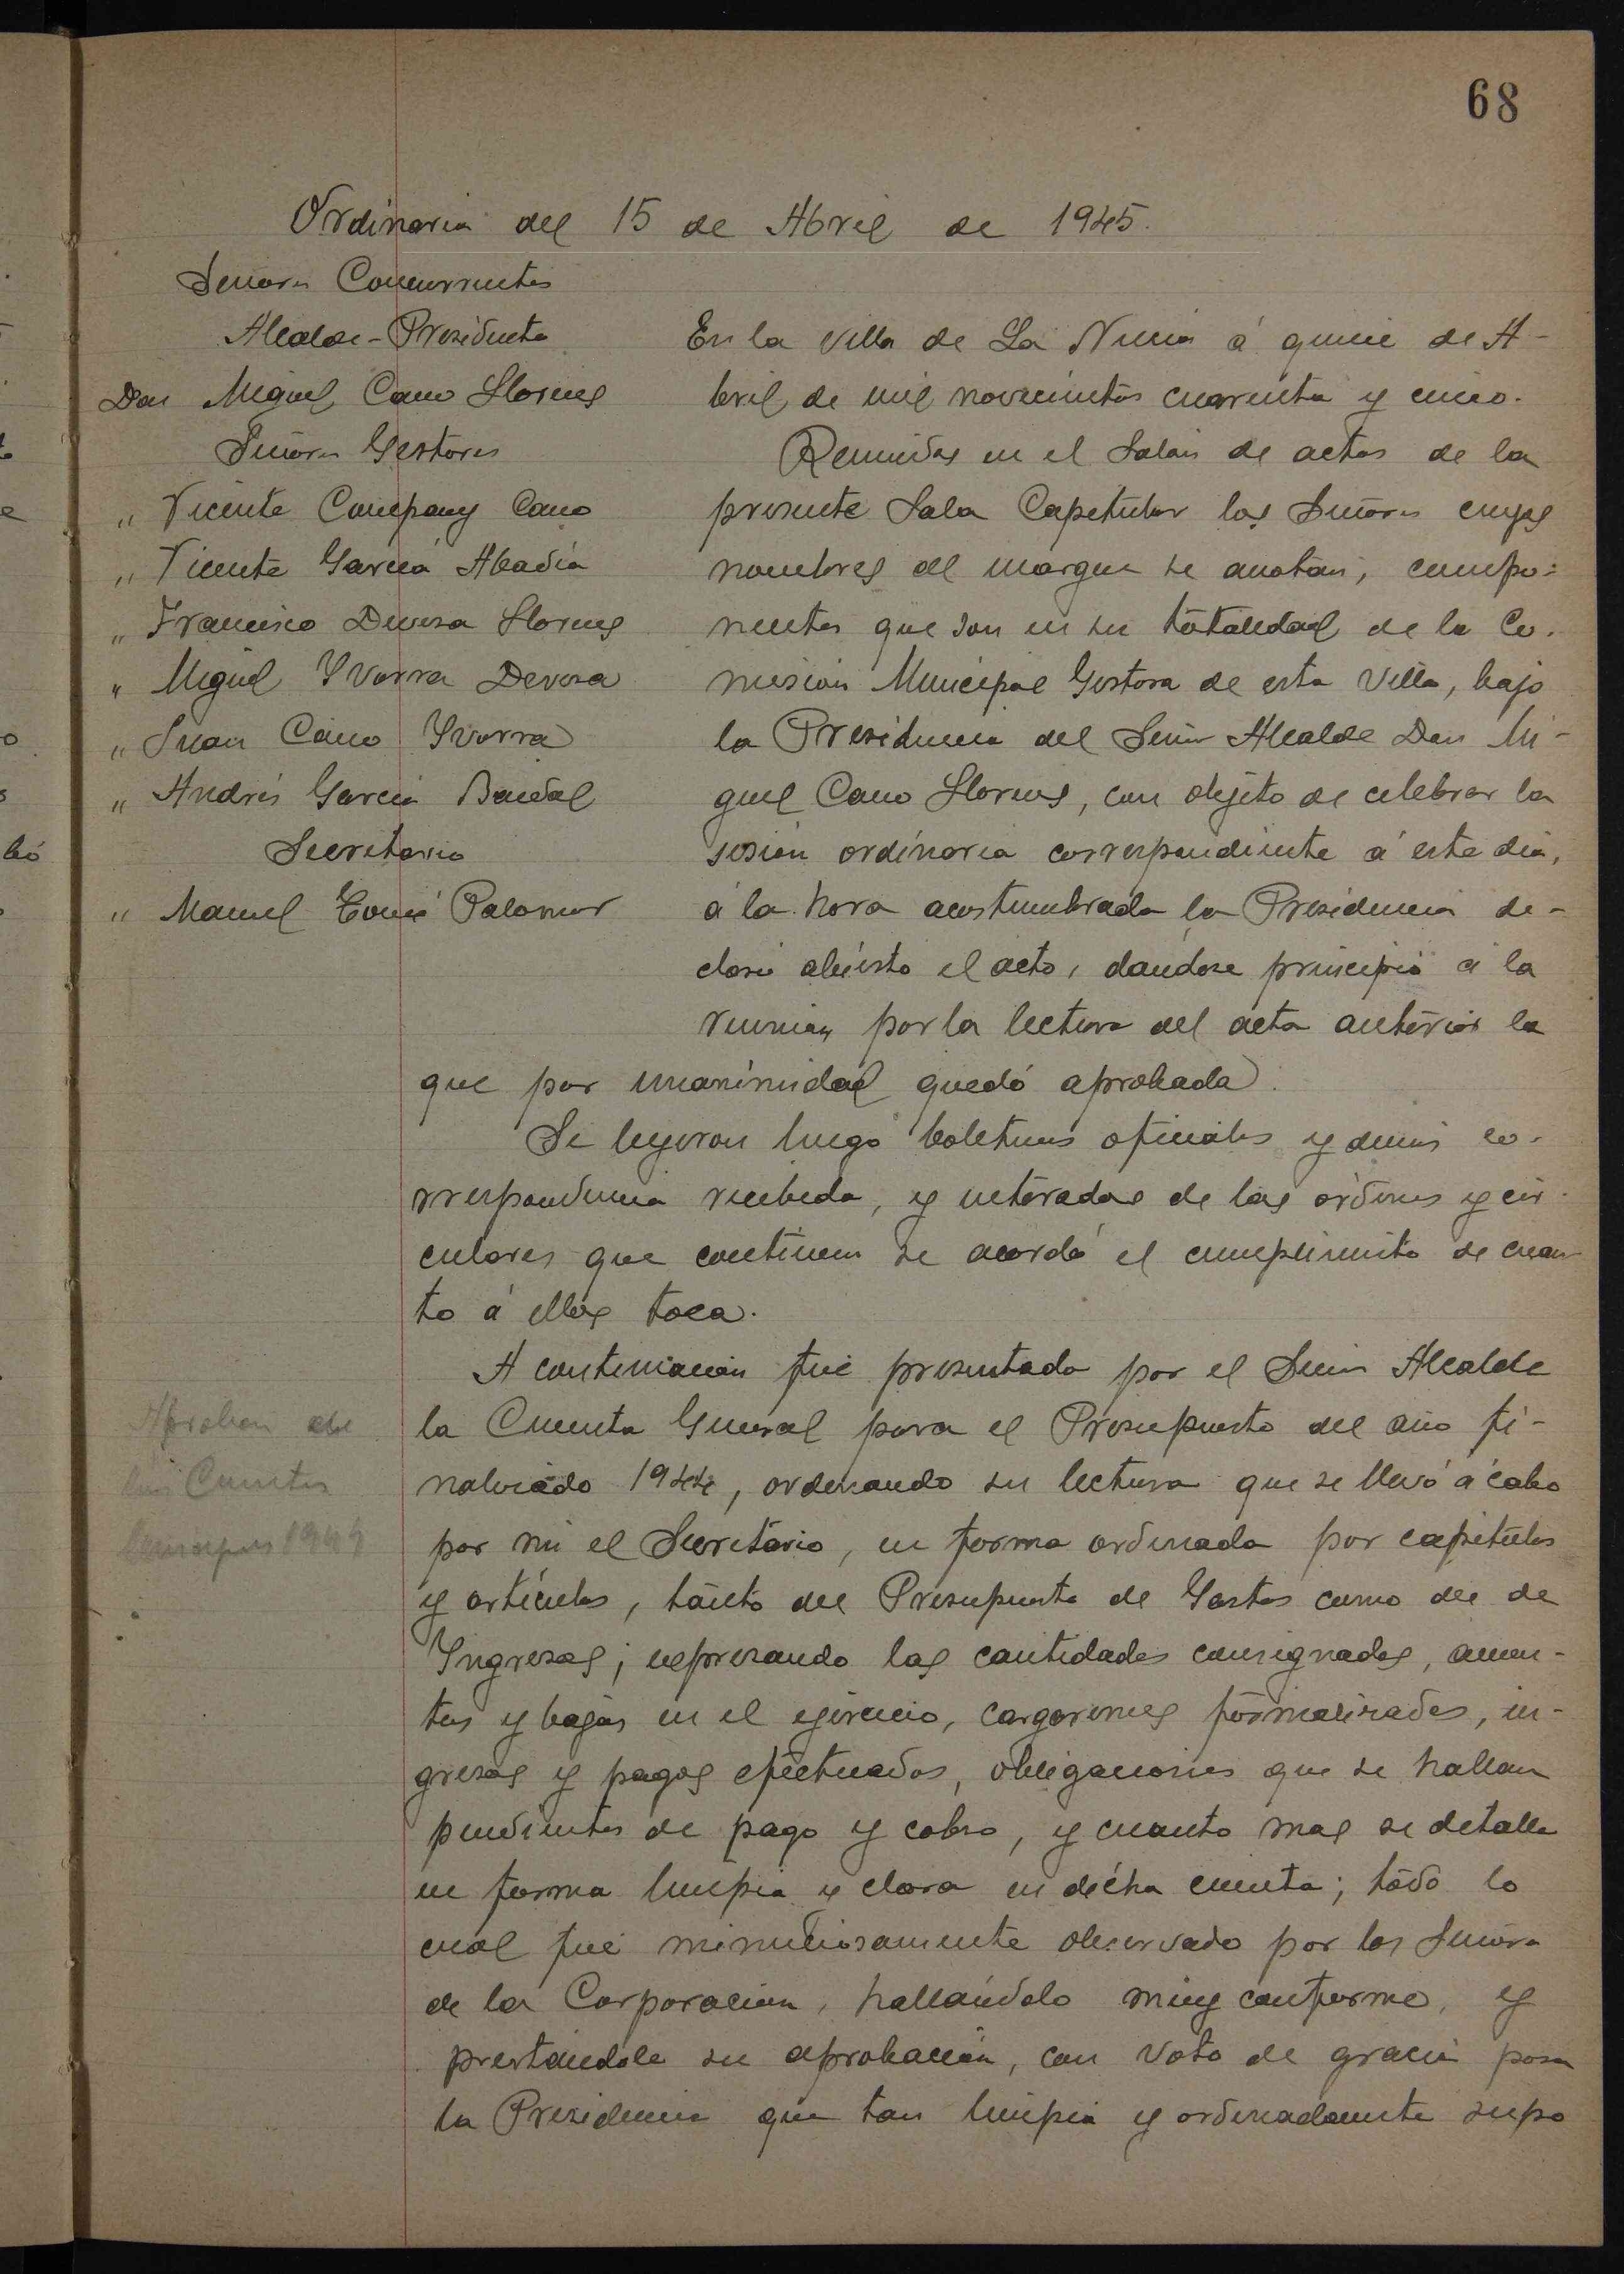 68
Ordinaria del 15 de Abril de 1945.
Señores Concurrentes
Alcalde-Presidente
Don Miguel Cano Llorens
Señores Gestores
" Vicente Company Cano
" Vicente García Abadía
" Francisco Devesa Llorens
" Miguel Yvorra Devesa
" Juan Cano Yvorra
" Andrés García Baidal
Secretario
" Manuel Tomé Palomar
En la villa de La Nucia á quince de A-
bril de mil novecientos cuarenta y cinco.
Reunidos en el Salón de actos de la
presente Sala Capitular los Señores cuyos
nombres al margen se anotan, compo-
nentes que son en su totalidad de la Co-
misión Municipal Gestora de esta Villa, bajo
la Presidencia del Señor Alcalde Don Mi-
guel Cano Llorens, con objeto de celebrar la
sesión ordinaria correspondiente á este día,
á la hora acostumbrada la Presidencia de-
claró abierto el acto, dándose principio á la
reunión por la lectura del acta anterior la
que por unanimidad quedó aprobada.
Se leyeron luego boletines oficiales y demás co-
rrespondencia recibida, y enterados de las órdenes y cir-
culares que contienen se acordó el cumplimiento de cuan-
to á ellos toca.
A continuación fué presentada por el Señor Alcalde
la Cuenta General para el Presupuesto del año fi-
nalizado 1944, ordenando su lectura que se llevó á cabo
por mi el Secretario, en forma ordenada por capítulos
y artículos, tanto del Presupuesto de Gastos como del de
Ingresos; expresando las cantidades consignadas, aumen-
tos y bajas en el ejercicio, cargaremes formalizados, in-
gresos y pagos efectuados, obligaciones que se hallan
pendientes de pago y cobro, y cuanto mas se detalla
en forma limpia y clara en dicha cuenta; todo lo
cual fué minuciosamente observado por los Señores
de la Corporación, hallándolo muy conforme, y
prestándole su aprobación, con voto de gracia para
la Presidencia que tan limpia y ordenadamente supo
Aprobación de
las Cuentas
1944